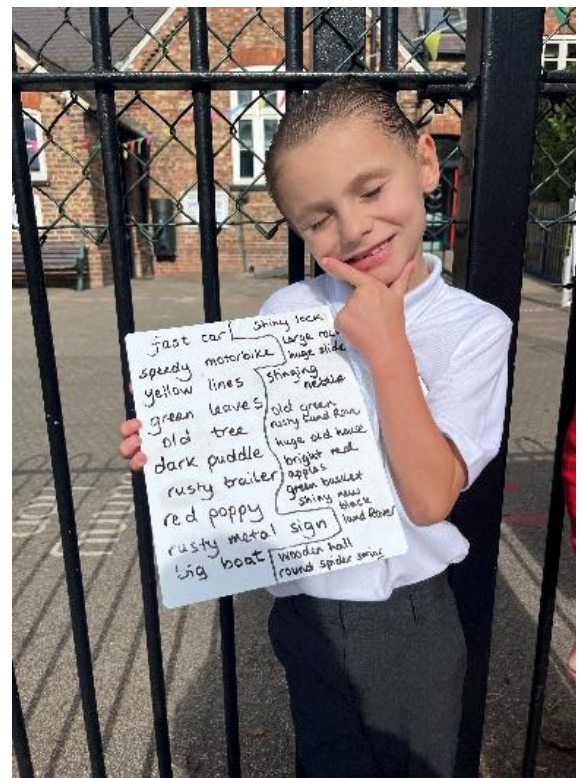 fast car
speedy motorbike
yellow lines
green leaves
old tree
dark puddle
rusty trailer
red poppy
rusty metal sign
big boat
shiny lock
large rock
huge slide
stinging
old green
rusty Land Rover
huge old house
bright red
apples
green basket
shiny new
black
land Rover
wooden hall
round spider swing